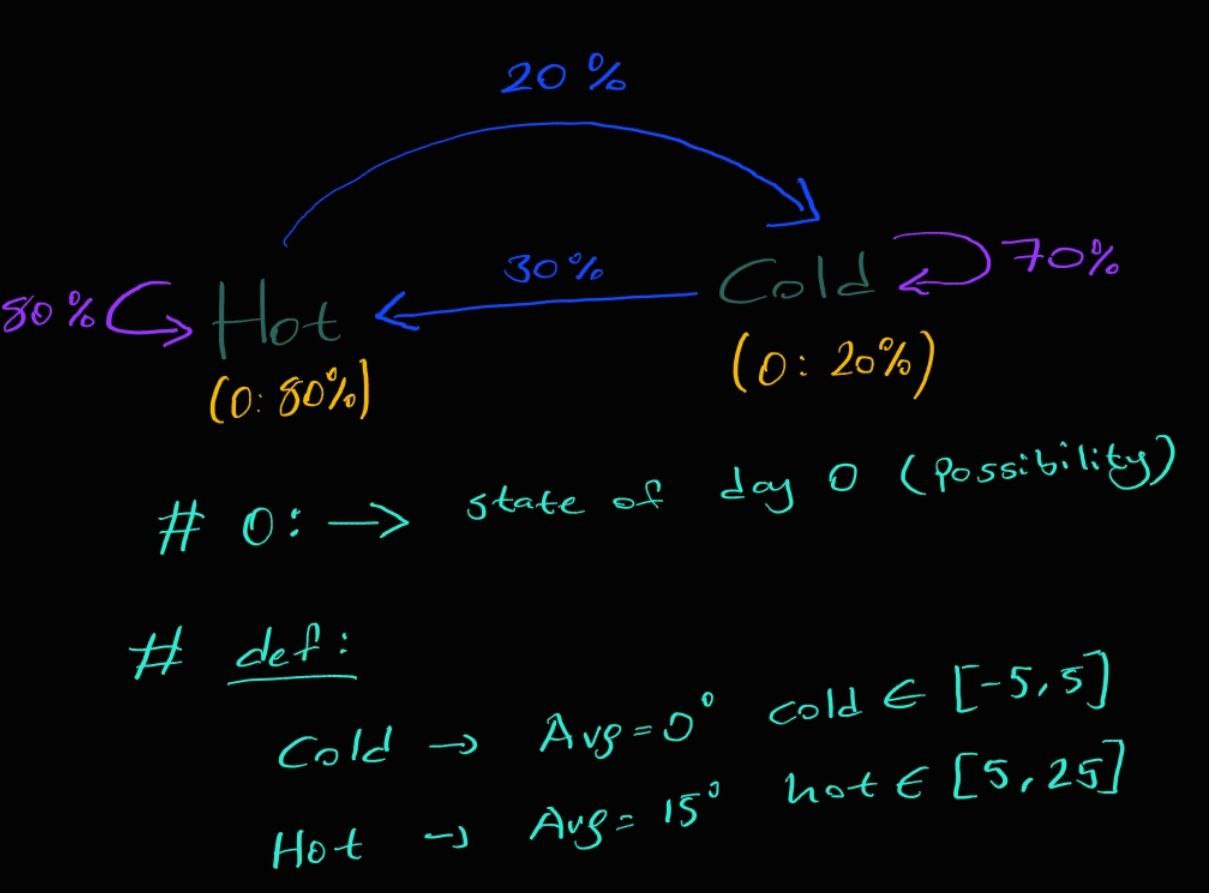 20%
30%
Cold
70%
80%
Hot
(0: 80%)
(0: 20%)
# 0: → state of day 0 (possibility)
# def:
Cold → Avg = 0° cold ∈ [-5, 5]
Hot → Avg = 15° hot ∈ [5, 25]